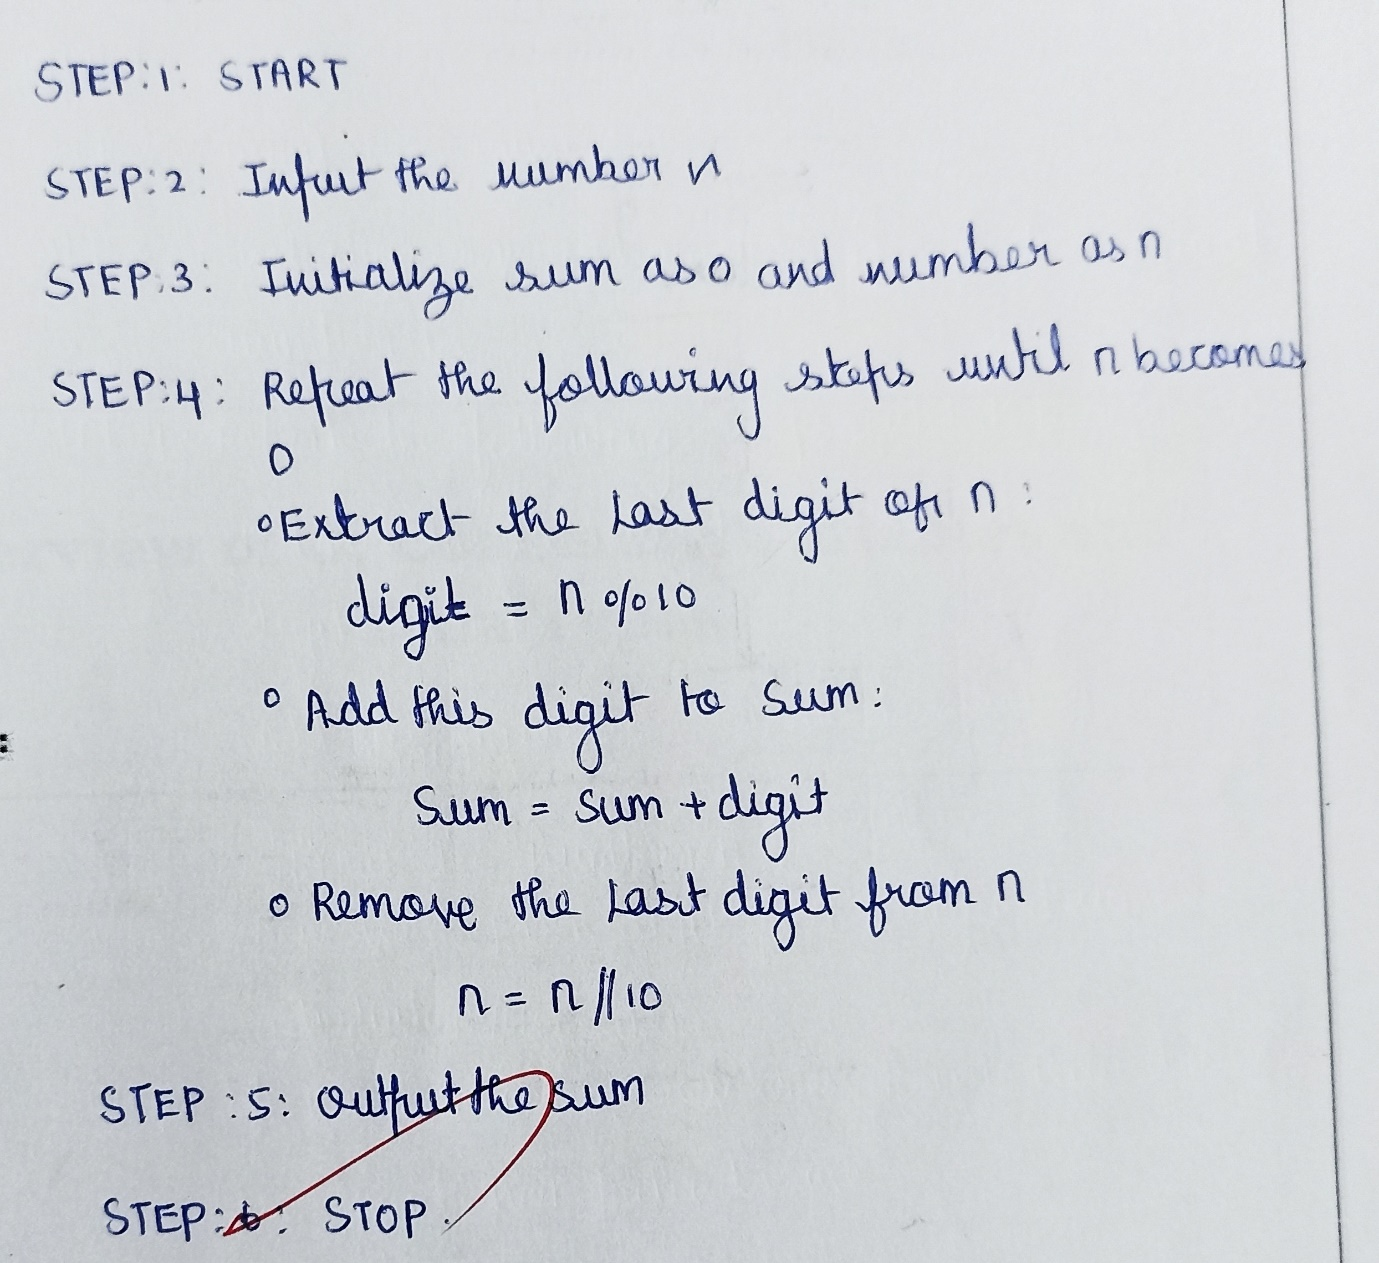 STEP:1: START
STEP:2: Input the number n
STEP:3: Initialize sum as 0 and number as n
STEP:4: Repeat the following steps until n becomes
0
∘ Extract the last digit of n:
digit = n % 10
∘ Add this digit to sum:
Sum = sum + digit
∘ Remove the last digit from n
n = n // 10
STEP :5: Output the sum
STEP:6: STOP.